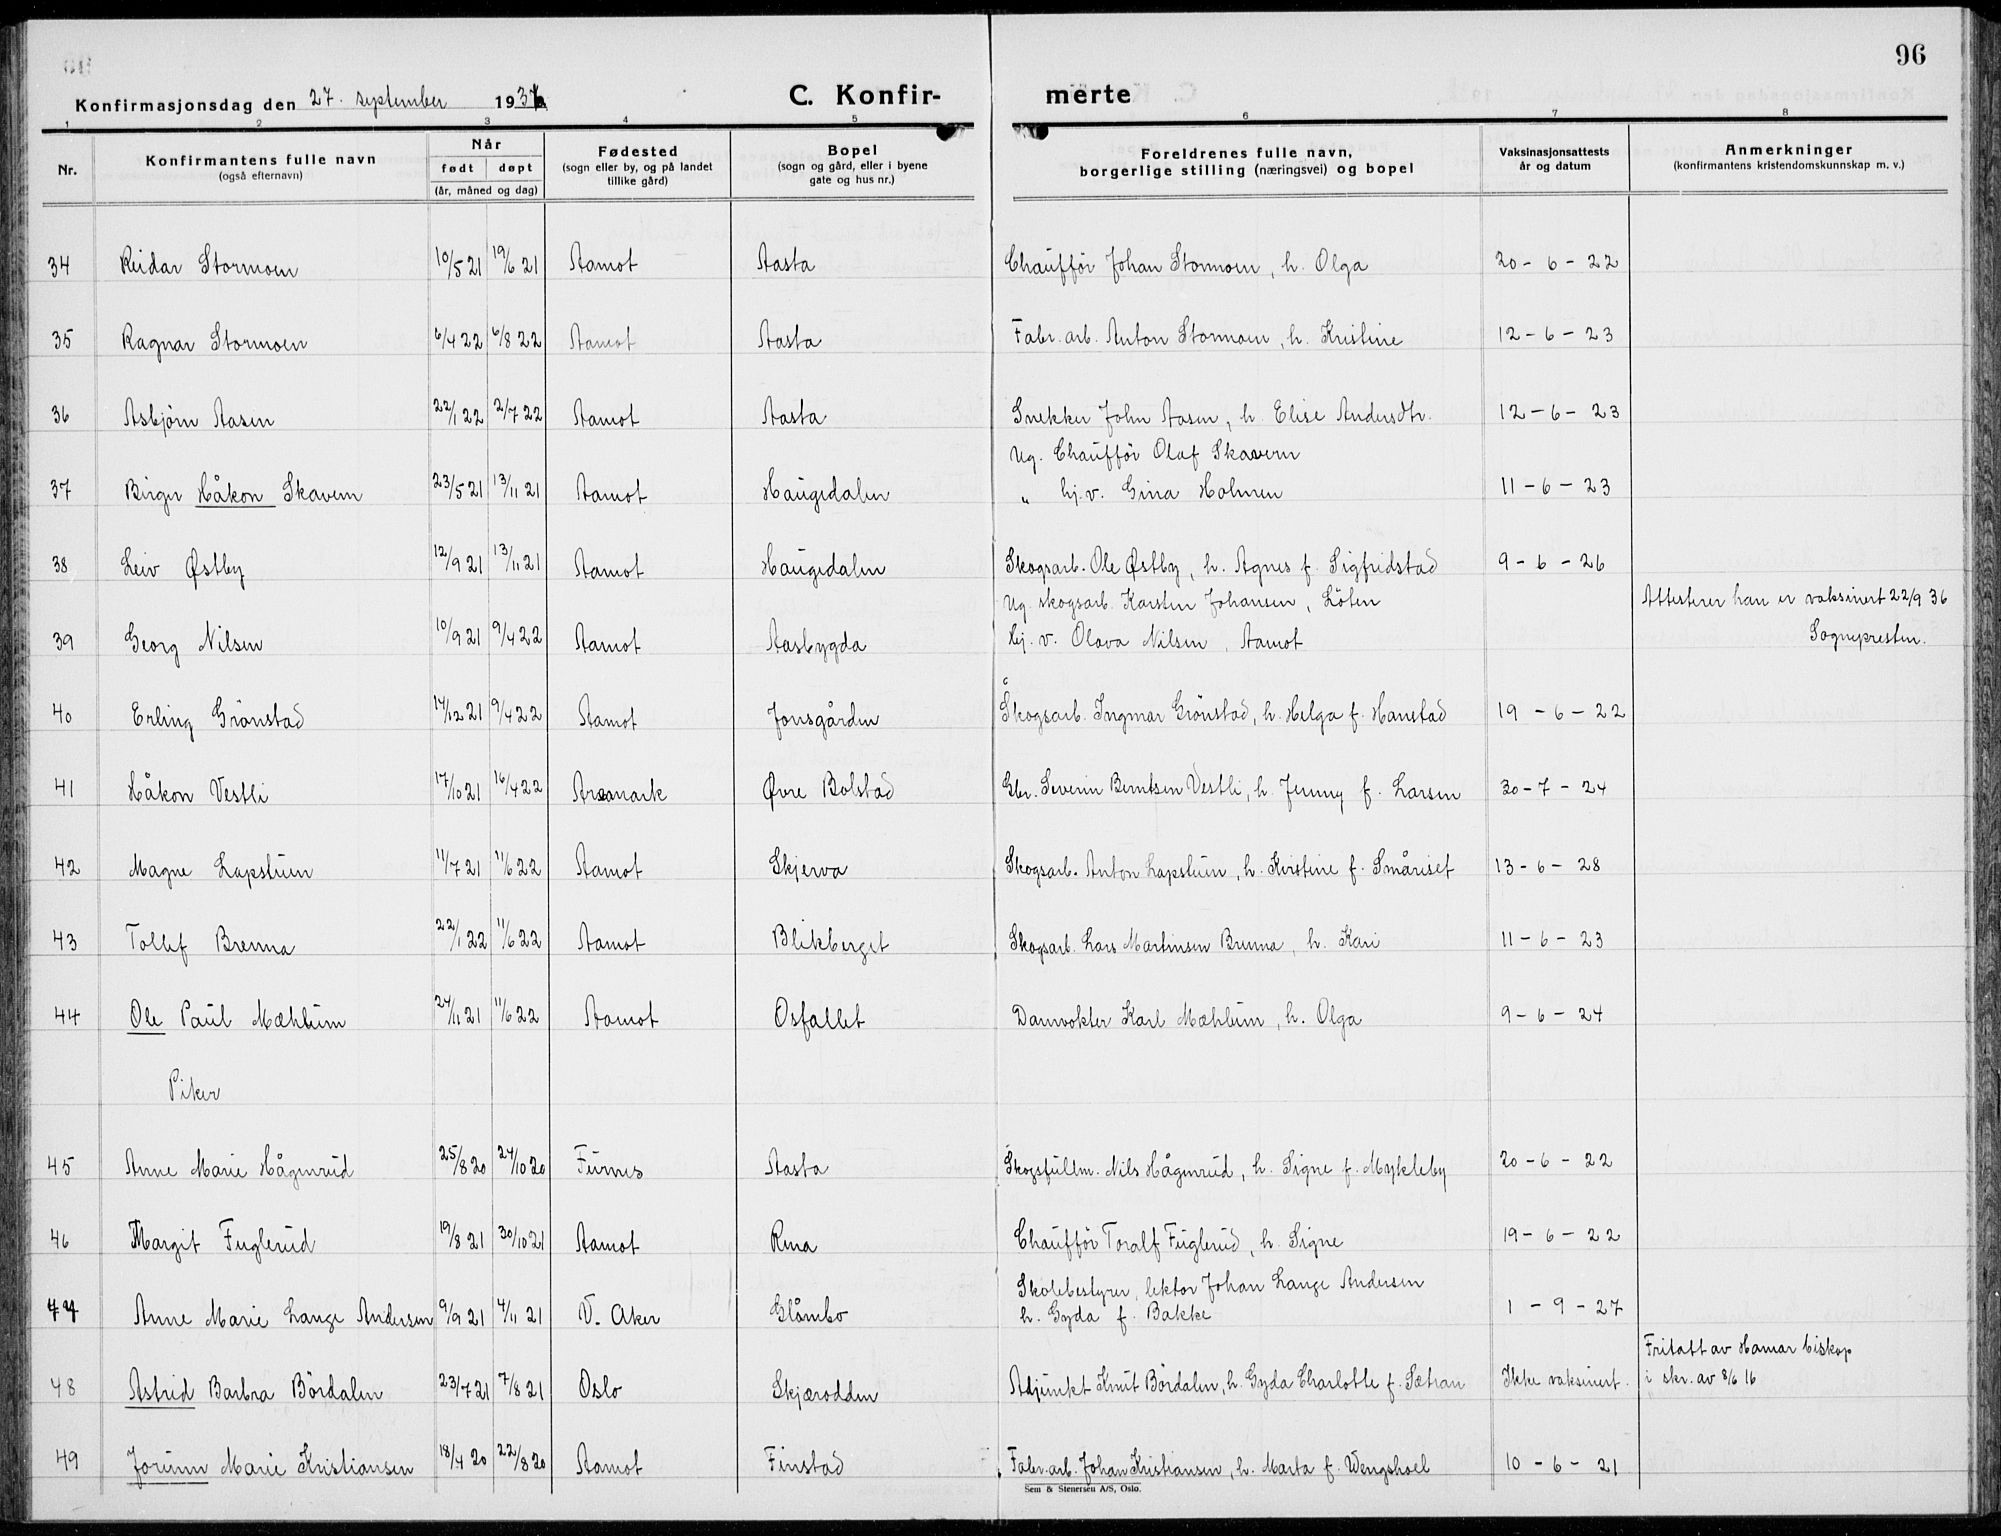 96
Konfirmasjonsdag den 27. september 1936
C. Konfirmerte
1 2 3 4 5 6 7 8
Nr. Konfirmantens fulle navn (også efternavn) Når født døpt (år, måned og dag) Fødested (sogn eller by, og på landet tillike gård) Bopel (sogn og gård, eller i byene gate og hus nr.) Foreldrenes fulle navn, borgerlige stilling (næringsvei) og bopel Vaksinasjonsattests år og datum Anmerkninger (konfirmantens kristendomskunnskap m. v.)
34 Reidar Stormoen 10/5 21 19/6 21 Aamot Aasta Chauffør Johan Stormoen, h. Olga 20 - 6 - 22
35 Ragnar Stormoen 6/4 22 6/8 22 Aamot Aasta Fabr. arb. Anton Stormoen, h. Kristine 12 - 6 - 23
36 Asbjørn Aasen 22/1 22 2/7 22 Aamot Aasta Snekker John Aasen, h. Elise Andersdtr. 12 - 6 - 23
Ug. Chauffør Olaf Skavern
37 Birger Håkon Skavern 23/5 21 13/11 21 Aamot Haugedalen " hj. v. Gina Holmen 11 - 6 - 23
38 Leiv Østby 12/9 21 13/11 21 Aamot Haugedalen Skogsarb. Ole Østby, h. Agnes f. Sigfridstad 9 - 6 - 26
Ug. skogsarb. Karsten Johansen, Löten Attesterer han er vaksinert 22/9 36
39 Georg Nilsen 10/9 21 9/4 22 Aamot Aasbygda Hj. v. Olava Nilsen, Aamot Sognepresten.
40 Erling Grönstad 17/12 21 9/4 22 Aamot Jonsgården Skogsarb. Ingmar Grönstad, h. Helga f. Hanstad 19 - 6 - 22
41 Håkon Vestli 17/10 21 16/4 22 Aremark Øvre Bolstad Gbr. Severin Berntsen Vestli, h. Jenny f. Larsen 30 - 7 - 24
42 Magne Lapstuen 11/7 21 11/6 22 Aamot Skjerva Skogsarb. Anton Lapstuen, h. Kirstine f. Småriset 13 - 6 - 28
43 Tollef Brenna 22/1 22 11/6 22 Aamot Blikberget Skogsarb. Lars Martinsen Brenna, h. Kari 11 - 6 - 23
44 Ole Paul Mæhlum 24/11 21 11/6 22 Aamot Osfallet Damvokter Karl Mæhlum, h. Olga 9 - 6 - 24
Piker
45 Anne Marie Hågenrud 25/8 20 24/10 20 Furnes Aasta Skogsfullm. Nils Hågenrud, h. Signe f. Mykleby 20 - 6 - 22
46 Margit Fuglerud 19/8 21 30/10 21 Aamot Rena Chauffør Toralf Fuglerud, h. Signe 19 - 6 - 22
Skolebestyrer, lektor Johan Lange Andersen
47 Anne Marie Lange Andersen 9/9 21 4/11 21 V. Aker Glåmbo h. Gyda f. Bakke 1 - 9 - 27
Fritatt av Hamar biskop
48 Astrid Barbra Bördalen 23/7 21 7/8 21 Oslo Skjærodden Adjunkt Knut Bördalen, h. Gyda Charlotte f. Sætran Ikke vaksinert. i skr. av 8/6 16
49 Jorunn Marie Kristiansen 18/4 20 22/8 20 Aamot Finstad Fabr. arb. Johan Kristiansen, h. Marta f. Wengshoel 10 - 6 - 21
Sem & Stenersen A/S, Oslo.